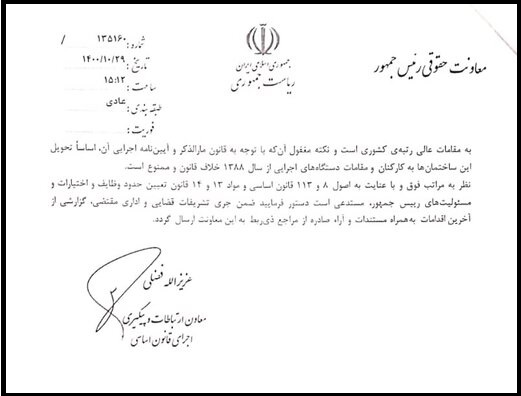 معاونت حقوقی رئیس جمهور
جمهوری اسلامی ایران
ریاست جمهوری
شماره: ۱۳۵۱۶۰ /
تاریخ: ۱۴۰۰/۱۰/۲۹
ساعت: ۱۵:۱۲
طبقه بندی: عادی
فوریت:
به مقامات عالی رتبه‌ی کشوری است و نکته مغفول آن‌که با توجه به قانون مارالذکر و آیین‌نامه اجرایی آن، اساساً تحویل
این ساختمان‌ها به کارکنان و مقامات دستگاه‌های اجرایی از سال ۱۳۸۸ خلاف قانون و ممنوع است.
نظر به مراتب فوق و با عنایت به اصول ۸ و ۱۱۳ قانون اساسی و مواد ۱۳ و ۱۴ قانون تعیین حدود وظایف و اختیارات و
مسئولیت‌های رییس جمهور، مستدعی است دستور فرمایید ضمن جری تشریفات قضایی و اداری مقتضی، گزارشی از
آخرین اقدامات به‌همراه مستندات و آراء صادره از مراجع ذی‌ربط به این معاونت ارسال گردد.
عزیزالله فضلی
معاون ارتباطات و پیگیری
اجرای قانون اساسی